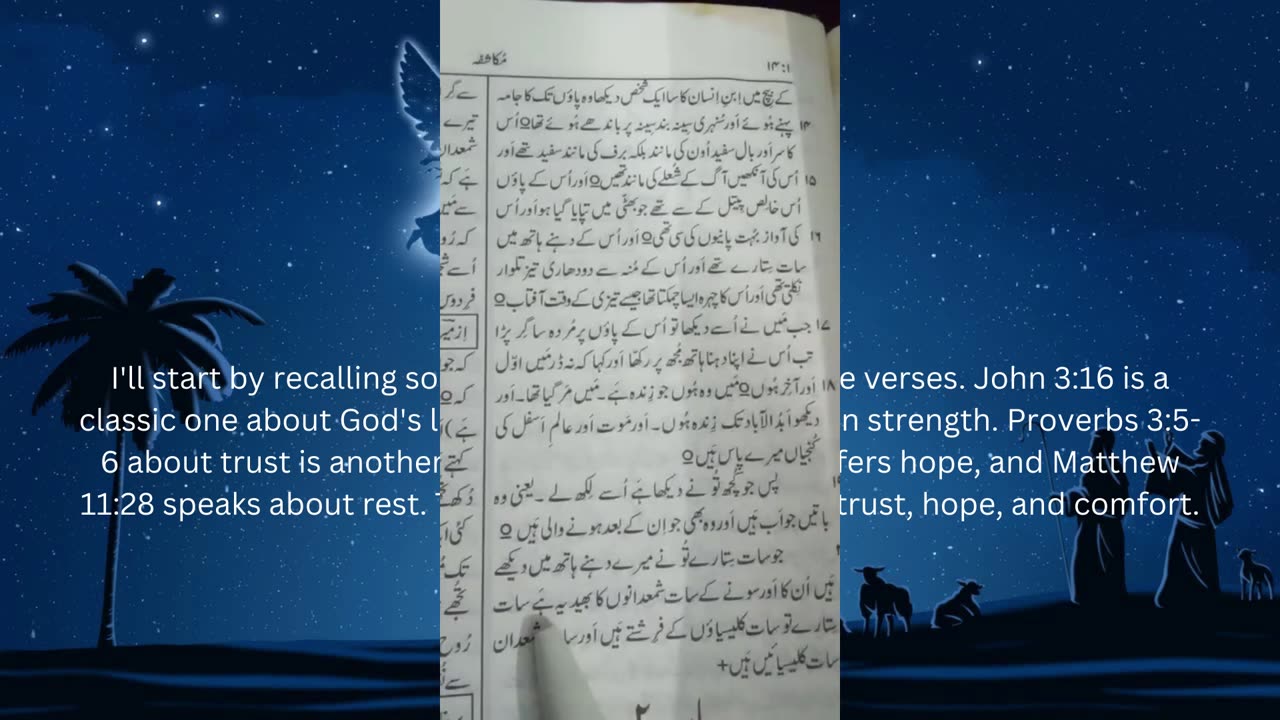 مُکاشفہ
۱۴:۱
کے بیچ میں اِبنِ اِنسان کا سا ایک شخص دیکھا وہ پاؤں تک کا جامہ
۱۴ پہنے ہُوئے اَور سُنہری سینہ بند سینہ پر باندھے ہُوئے تھا o اُس
کا سر اَور بال سفید اُون کی مانند بلکہ برف کی مانند سفید تھے اَور
۱۵ اُس کی آنکھیں آگ کے شُعلے کی مانند تھیں o اَور اُس کے پاؤں
اُس خالِص پیتل کے سے تھے جو بھٹّی میں تپایا گیا ہو اَور اُس
۱۶ کی آواز بہُت پانیوں کی سی تھی o اَور اُس کے دہنے ہاتھ میں
سات سِتارے تھے اَور اُس کے مُنہ سے دودھاری تیز تلوار
نکلتی تھی اَور اُس کا چہرہ ایسا چمکتا تھا جیسے تیزی کے وقت آفتاب o
۱۷ جب مَیں نے اُسے دیکھا تو اُس کے پاؤں پر مُردہ سا گِر پڑا
تب اُس نے اپنا دہنا ہاتھ مُجھ پر رکھّا اَور کہا کہ نہ ڈر مَیں اوّل
۱۸ اَور آخِر ہُوں o مَیں وہ ہُوں جو زِندہ ہَے ۔ مَیں مَر گیا تھا ۔ اَور
دیکھو اَبدُالآباد تک زِندہ ہُوں ۔ اَور مَوت اَور عالمِ اَسفل کی
کُنجیاں میرے پاس ہَیں o
پس جو کُچھ تُو نے دیکھا ہَے اُسے لِکھ لے ۔ یعنی وہ
باتیں جو اَب ہَیں اَور وہ بھی جو اِن کے بعد ہونے والی ہَیں o
جو سات سِتارے تُو نے میرے دہنے ہاتھ میں دیکھے
ہَیں اُن کا اَور سونے کے سات شمعدانوں کا بھید یہ ہَے سات
سِتارے تو سات کلیسیاؤں کے فرِشتے ہَیں اَور سا شمعدان
سات کلیسیائیں ہَیں +
باب ۲
سے گِر
تیرے
شمعدان
ہَے کہ
سے مَیں
کہ رُو
اُسے
فِردوس
کہ جو
کہ
ہَے)
کہتے
دُکھ
کئی
تک
تُجھے
رُوح
سے
I'll start by recalling so
e verses. John 3:16 is a
classic one about God's l
n strength. Proverbs 3:5-
6 about trust is another
fers hope, and Matthew
11:28 speaks about rest.
trust, hope, and comfort.